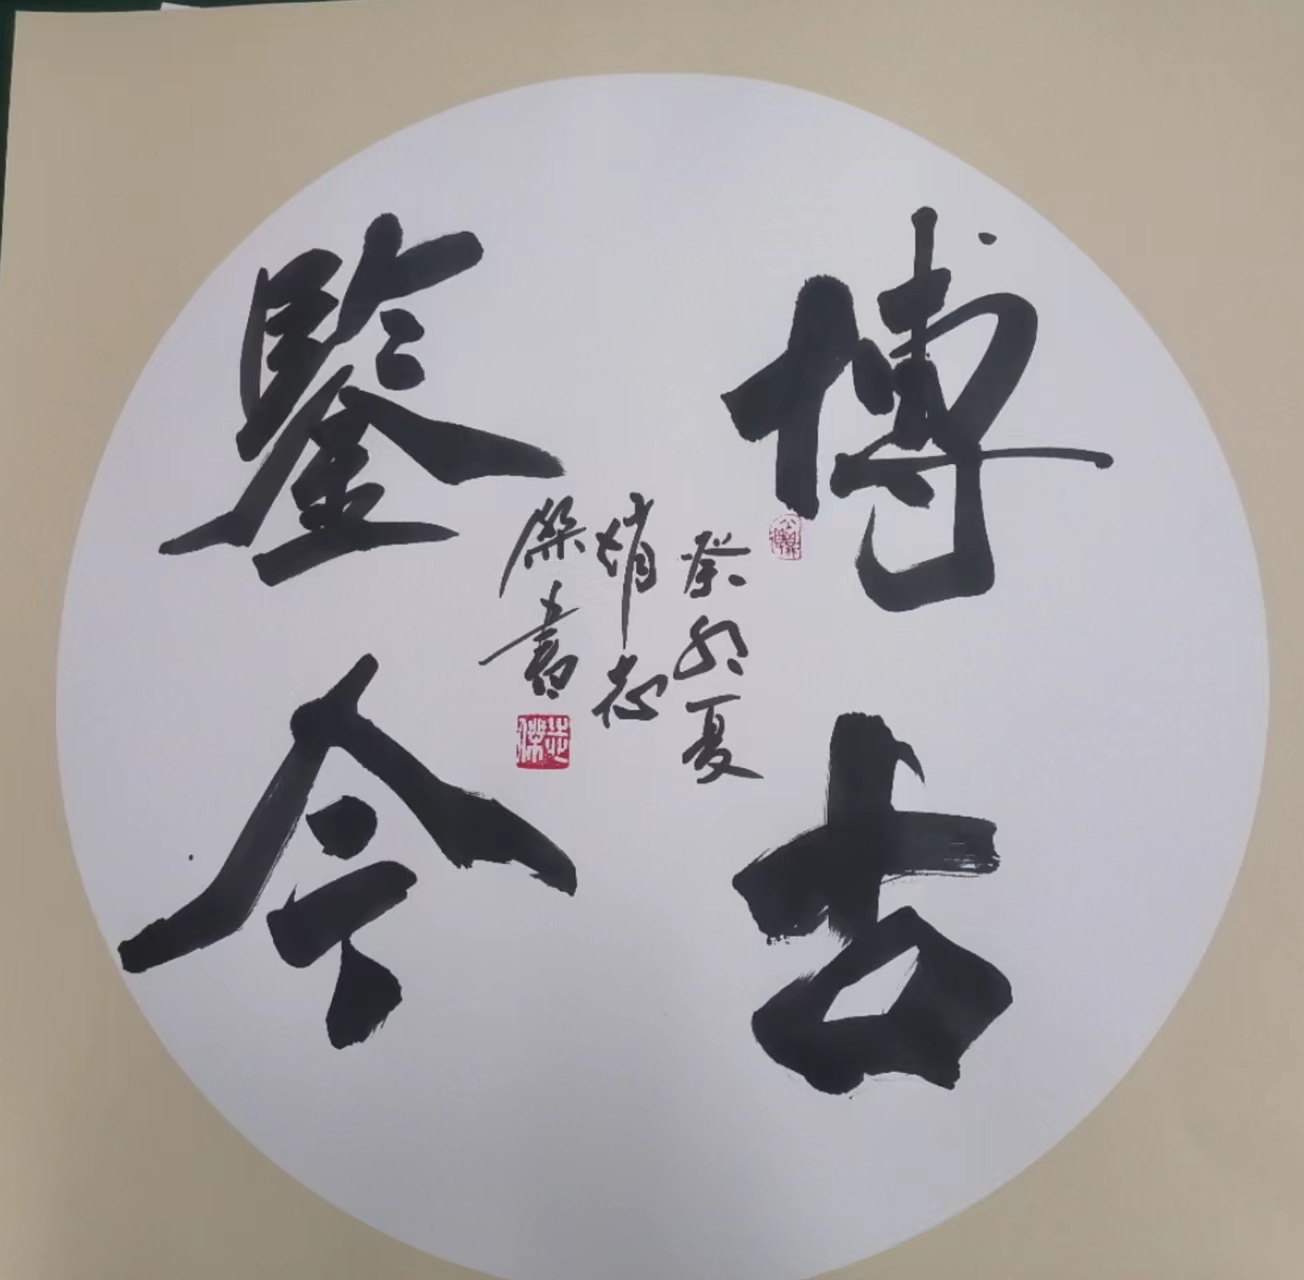 博古
鑒今
癸卯夏
志
傑書